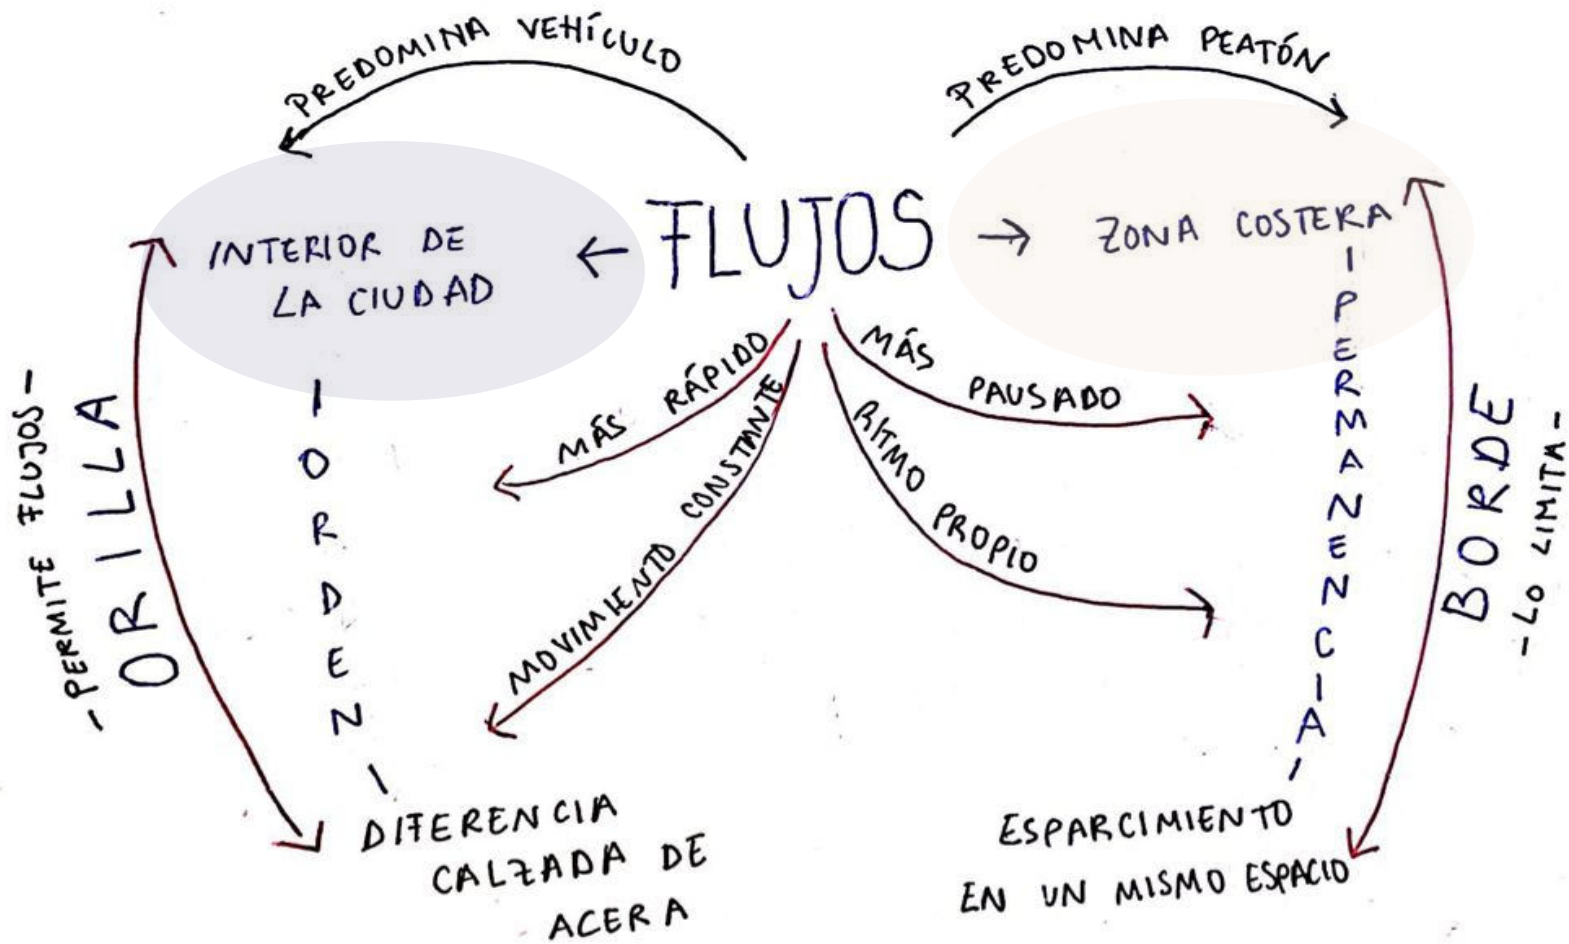 PREDOMINA VEHÍCULO
PREDOMINA PEATÓN
FLUJOS
INTERIOR DE
LA CIUDAD
ZONA COSTERA
MÁS RÁPIDO
MOVIMIENTO CONSTANTE
MÁS PAUSADO
RITMO PROPIO
ORILLA
-PERMITE FLUJOS-
ORDEN
PERMANENCIA
BORDE
-LO LIMITA-
DIFERENCIA
CALZADA DE
ACERA
ESPARCIMIENTO
EN UN MISMO ESPACIO